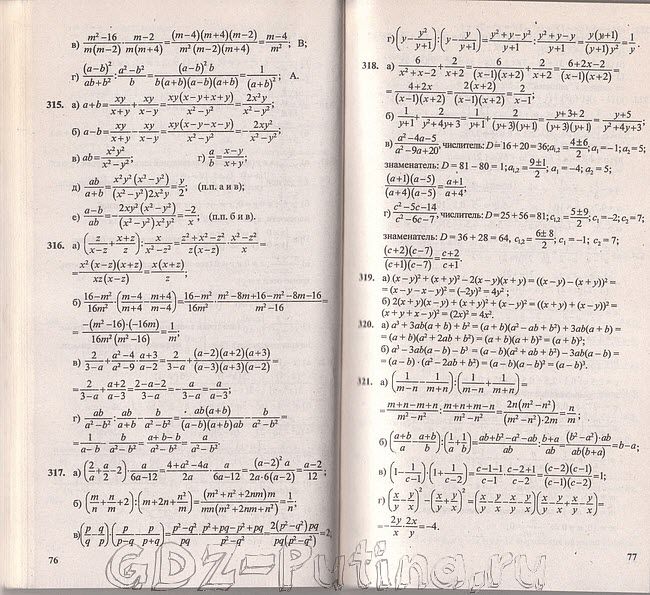 в) (m²−16)/(m(m−2)) · (m−2)/(m(m+4)) = ((m−4)(m+4)(m−2))/(m²(m−2)(m+4)) = (m−4)/m²; В;
г) (a−b)²/(ab+b²) : (a²−b²)/b = ((a−b)²b)/(b(a+b)(a−b)(a+b)) = 1/(a+b)²; А.
315. а) a+b = xy/(x+y) + xy/(x−y) = (xy(x−y+x+y))/(x²−y²) = 2x²y/(x²−y²);
б) a−b = xy/(x+y) − xy/(x−y) = (xy(x−y−x−y))/(x²−y²) = −2xy²/(x²−y²);
в) ab = x²y²/(x²−y²); г) a/b = (x−y)/(x+y);
д) ab/(a+b) = (x²y²(x²−y²))/((x²−y²)2x²y) = y/2; (п.п. а и в);
е) (a−b)/ab = −(2xy²(x²−y²))/((x²−y²)x²y²) = −2/x; (п.п. б и в).
316. а) (z/(x−z) + (x+z)/z) : x/(x²−z²) = (z²+x²−z²)/(z(x−z)) · (x²−z²)/x =
= (x²(x−z)(x+z))/(xz(x−z)) = x(x+z)/z;
б) (16−m²)/16m² · ((m−4)/(m+4) − (m+4)/(m−4)) = (16−m²)/16m² · (m²−8m+16−m²−8m−16)/(m²−16) =
= (−(m²−16)·(−16m))/(16m²(m²−16)) = 1/m;
в) 2/(3−a) − (a²−4)/(a²−9) : (a−2)/(a+3) = 2/(3−a) + ((a−2)(a+2)(a+3))/((a−3)(a+3)(a−2)) =
г) ab/(a²−b²) : ab/(a+b) − b/(a²−b²) = ab(a+b)/((a−b)(a+b)ab) − b/(a²−b²) =
= 1/(a−b) − b/(a²−b²) = (a+b−b)/(a²−b²) = a/(a²−b²).
317. а) (2/a + a/2 − 2) · a/(6a−12) = (4+a²−4a)/2a · a/(6a−12) = ((a−2)²a)/(2a·6(a−2)) = (a−2)/12;
б) (m/n + n/m + 2) : (m+2n+n²/m) = ((m²+n²+2nm)m)/(mn(m²+2nm+n²)) = 1/n;
76
г) (y − y²/(y+1)) : (y − y/(y+1)) = (y²+y−y²)/(y+1) : (y²+y−y)/(y+1) = y(y+1)/((y+1)y²) = 1/y.
318. а) 6/(x²+x−2) + 2/(x+2) = 6/((x−1)(x+2)) + 2/(x+2) = (6+2x−2)/((x−1)(x+2)) =
= (4+2x)/((x−1)(x+2)) = 2(x+2)/((x−1)(x+2)) = 2/(x−1);
б) 1/(y+1) + 2/(y²+4y+3) = 1/(y+1) + 2/((y+3)(y+1)) = (y+3+2)/((y+3)(y+1)) = (y+5)/(y²+4y+3);
в) (a²−4a−5)/(a²−9a+20), числитель: D=16+20=36; a₁,₂ = (4±6)/2, a₁=−1; a₂=5;
знаменатель: D = 81 − 80 = 1; a₁,₂ = (9±1)/2, a₁ = −4; a₂ = 5;
((a+1)(a−5))/((a+4)(a−5)) = (a+1)/(a+4);
г) (c²−5c−14)/(c²−6c−7), числитель: D=25+56=81; c₁,₂ = (5±9)/2, c₁ = −2; c₂ = 7;
знаменатель: D = 36 + 28 = 64, c₁,₂ = (6±8)/2, c₁ = −1; c₂ = 7;
((c+2)(c−7))/((c+1)(c−7)) = (c+2)/(c+1).
319. а) (x−y)² + (x+y)² − 2(x−y)(x+y) = ((x−y) − (x+y))² =
= (x − y − x − y)² = (−2y)² = 4y²;
б) 2(x+y)(x−y) + (x+y)² + (x−y)² = ((x+y) + (x−y))² =
(x + y + x − y)² = (2x)² = 4x².
320. а) a³ + 3ab(a + b) + b³ = (a + b)(a² − ab + b²) + 3ab(a + b) =
= (a + b)(a² + 2ab + b²) = (a + b)(a + b)² = (a + b)³;
б) a³ − 3ab(a − b) − b³ = (a − b)(a² + ab + b²) − 3ab(a − b) =
= (a − b) · (a² − 2ab + b²) = (a − b)(a − b)² = (a − b)³.
321. а) (1/(m−n) − 1/(m+n)) : (1/(m−n) + 1/(m+n)) =
= (m+n−m+n)/(m²−n²) : (m+n+m−n)/(m²−n²) = 2n(m²−n²)/((m²−n²)·2m) = n/m;
в) (1 − 1/(c−1)) : (1 + 1/(c−2)) = (c−1−1)/(c−1) · (c−2+1)/(c−2) = ((c−2)(c−1))/((c−1)(c−2)) = 1;
г) (x/y − y/x)² − (x/y + y/x)² = (x/y − y/x − x/y − y/x)(x/y − y/x + x/y + y/x) =
= −2y/x · 2x/y = −4.
77
GDZ-Putina.ru